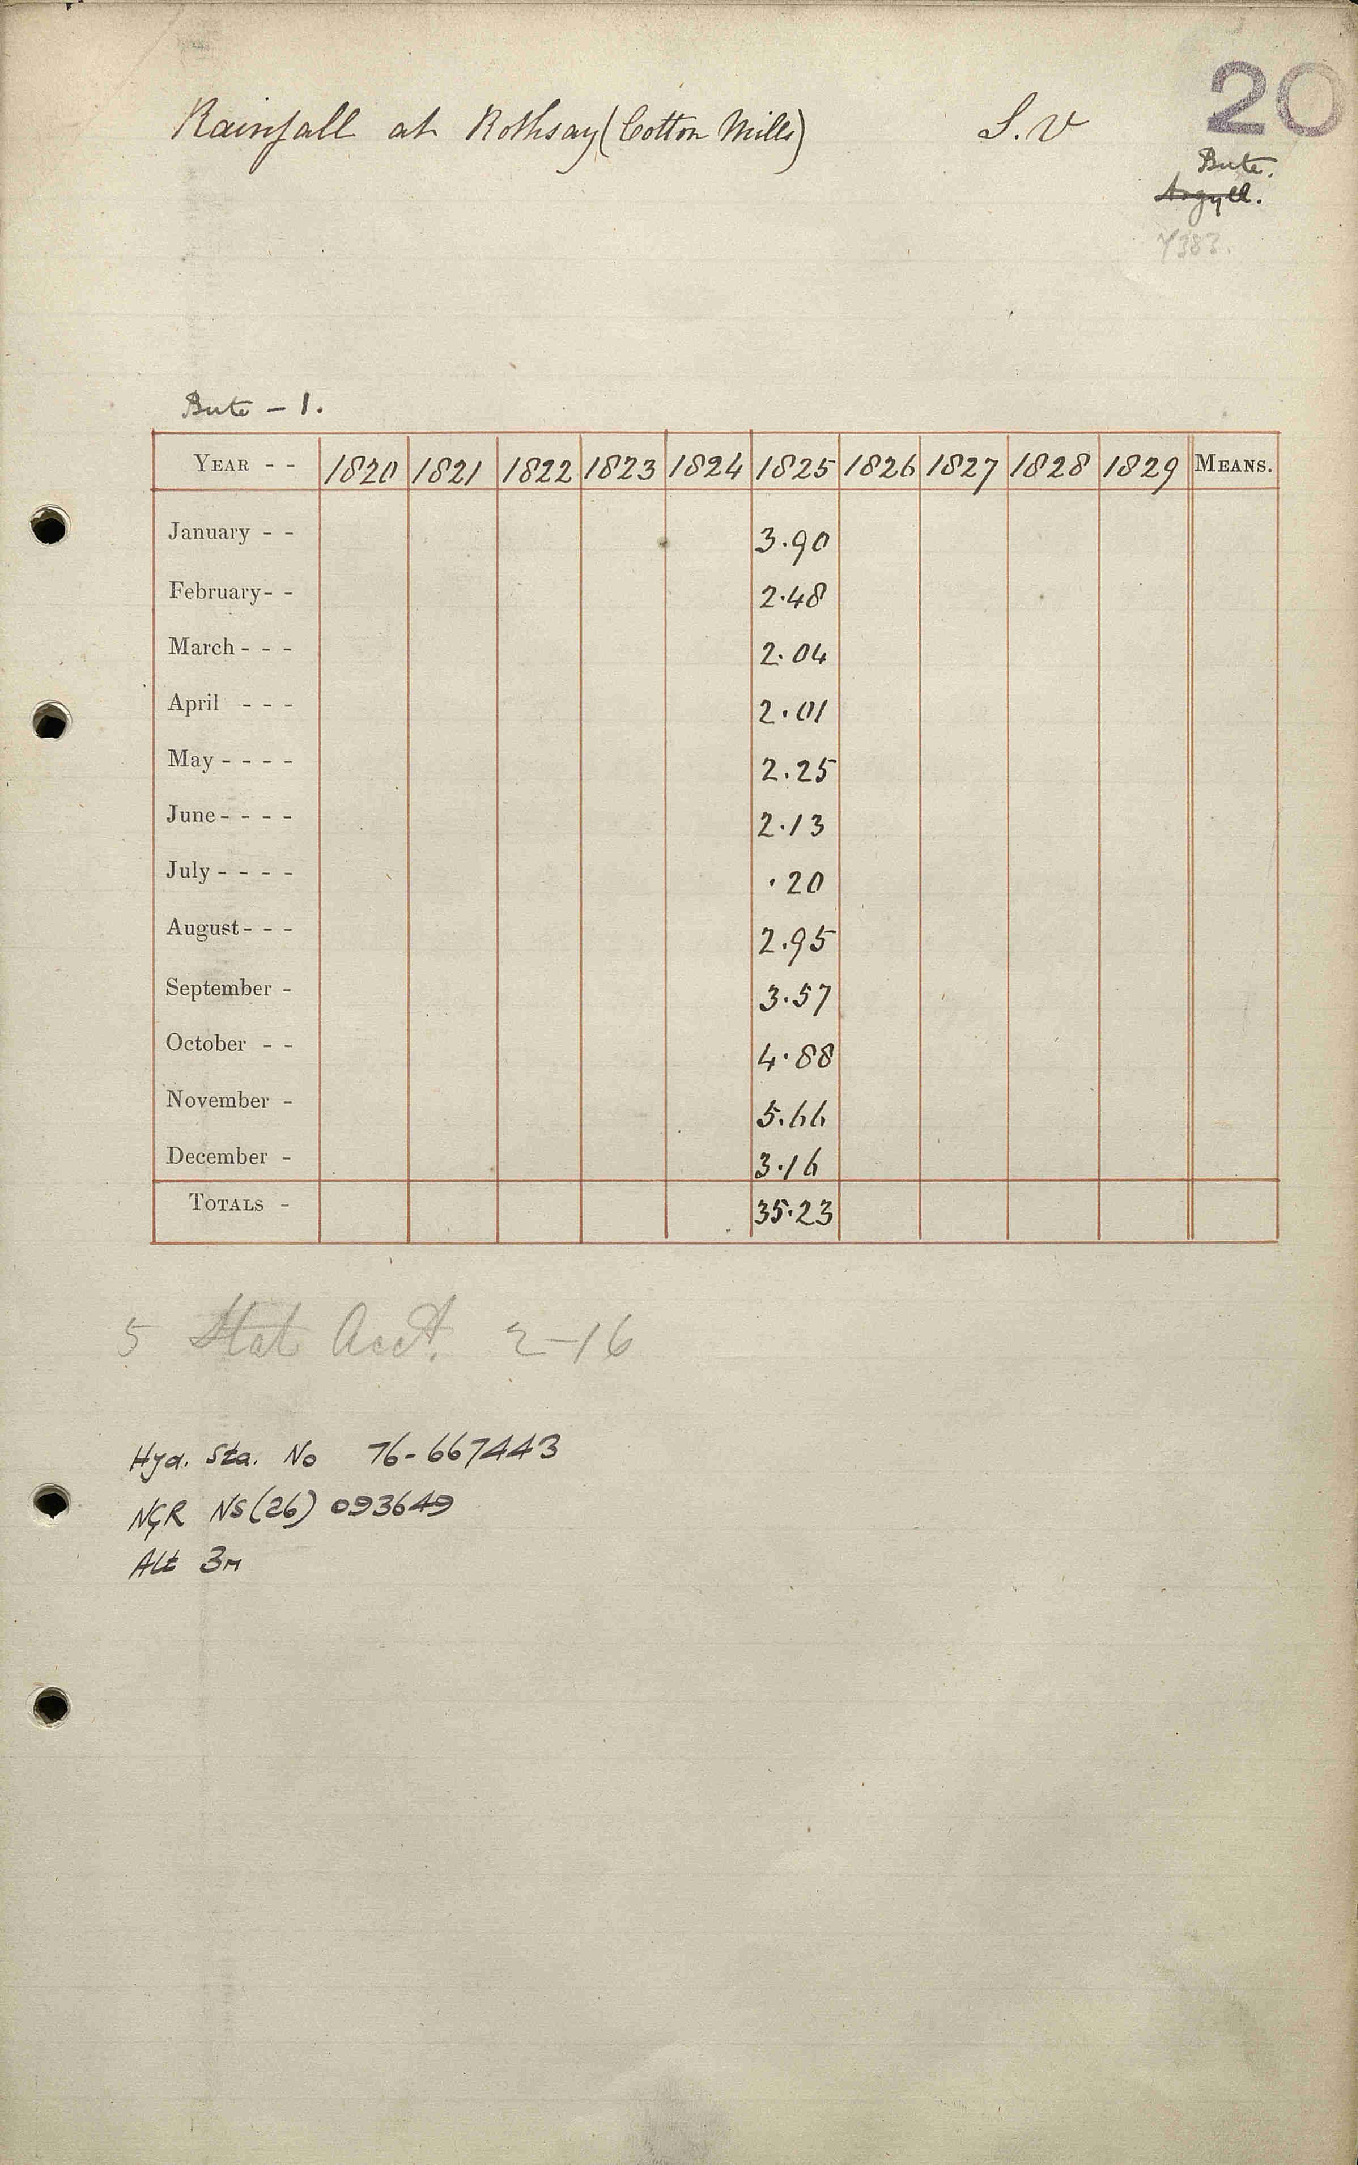 20
Rainfall at Rothsay (Cotton Mills) S.V
Bute.
Argyll.
Bute - 1.
YEAR - - 1820 1821 1822 1823 1824 1825 1826 1827 1828 1829 MEANS.
January - - 3.90
February - - 2.48
March - - - 2.04
April - - - 2.01
May - - - - 2.25
June - - - - 2.13
July - - - - .20
August - - - 2.95
September - 3.57
October - - 4.88
November - 5.66
December - 3.16
TOTALS - 35.23
5 Stat Acct. 2-16
Hyd. Sta. No 76-667443
NGR NS(26) 093649
Alt 3m